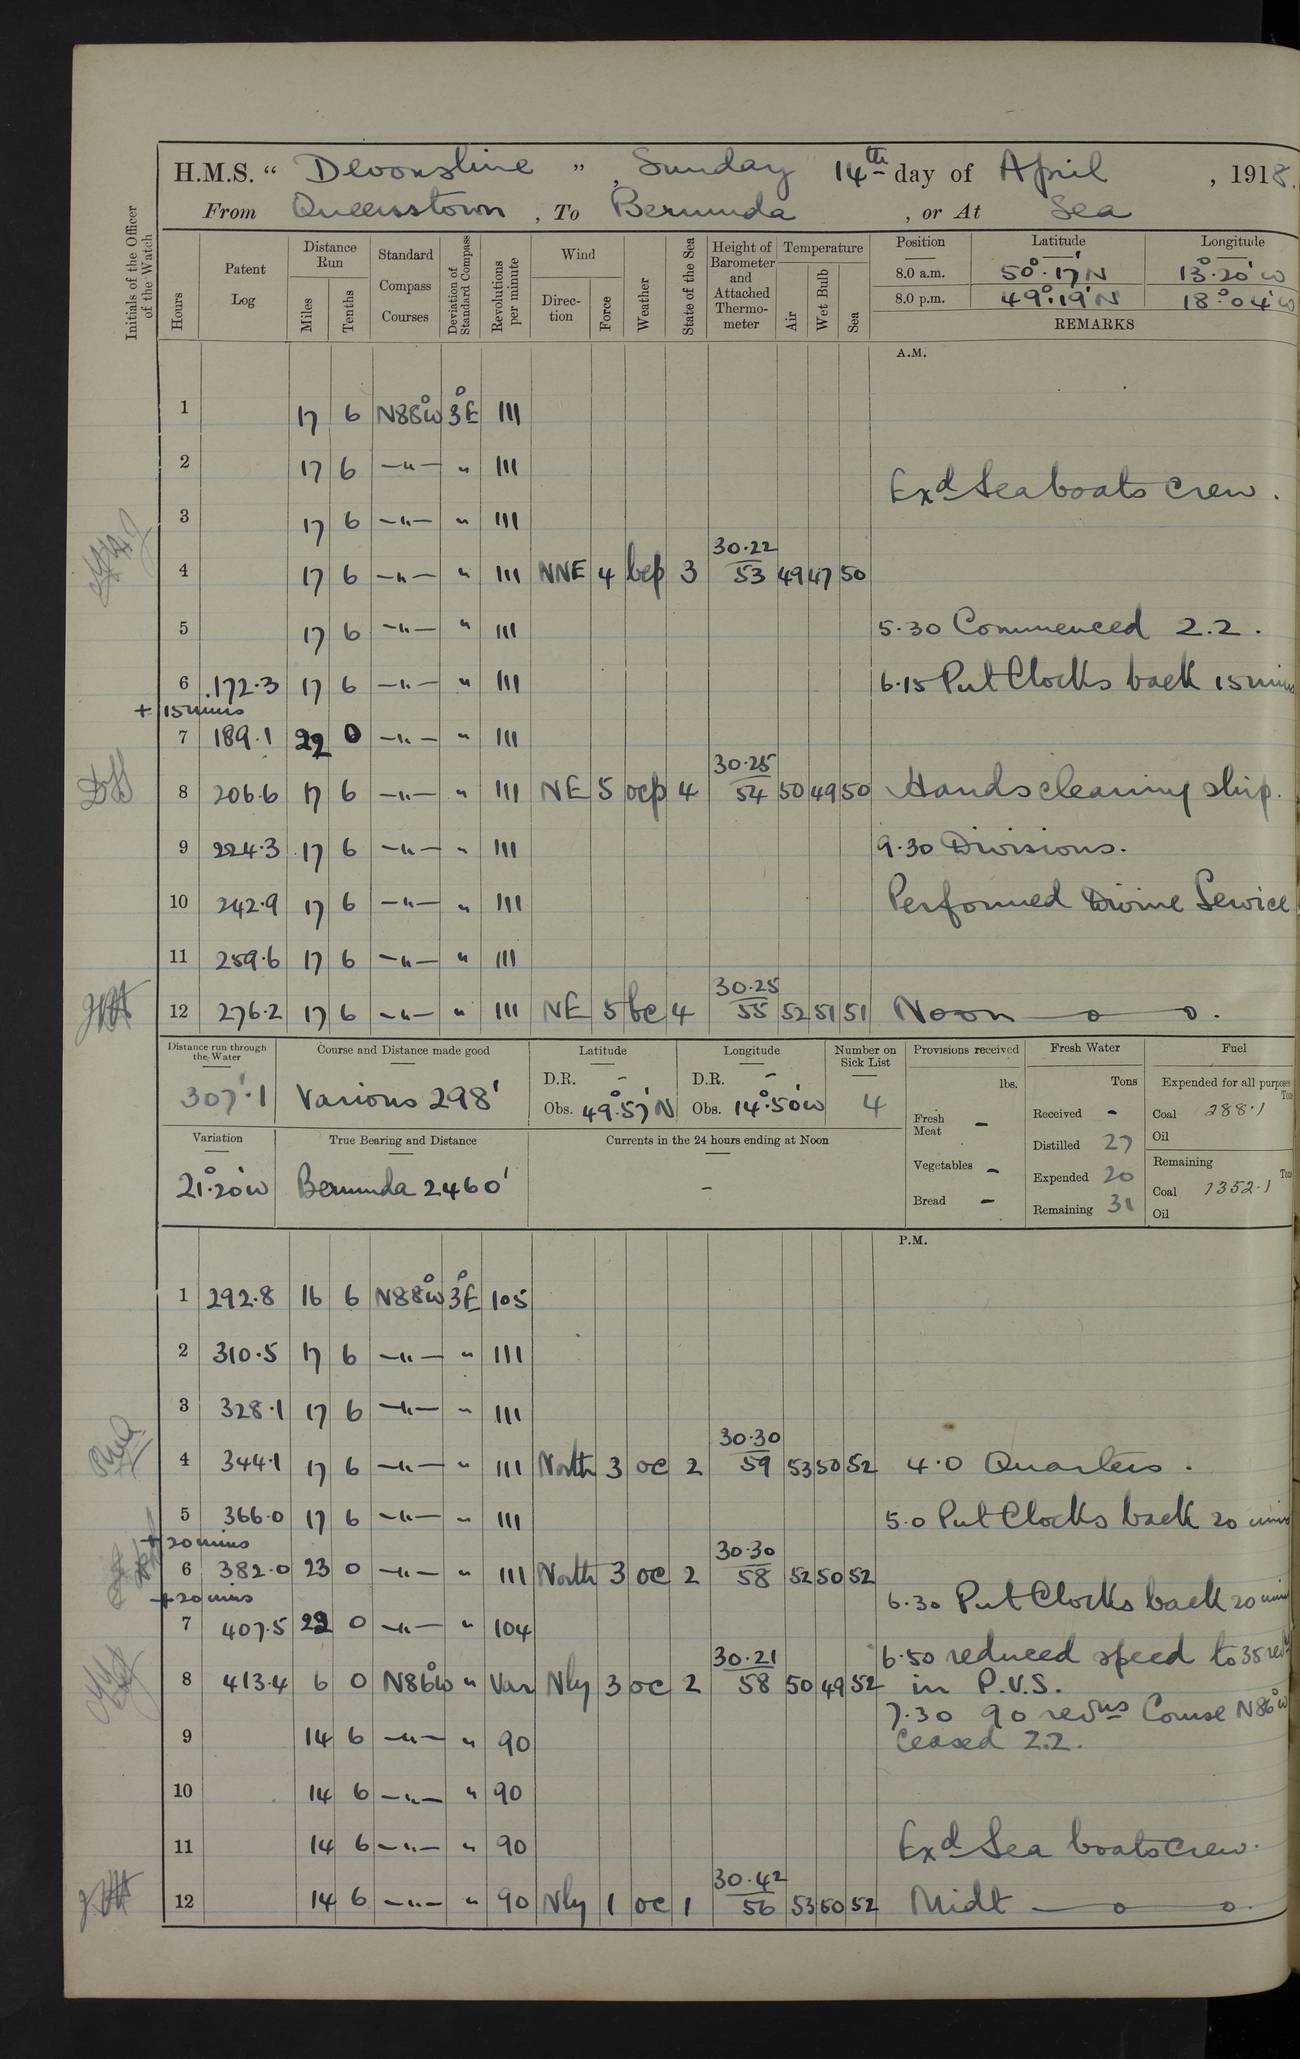 H.M.S. “ Devonshire ” , Sunday 14th day of April , 1918.
From Queenstown , To Bermuda , or At Sea
Initials of the Officer of the Watch
Hours
Patent Log
Distance Run
Miles
Tenths
Standard Compass Courses
Deviation of Standard Compass
Revolutions per minute
Wind
Direc-tion
Force
Weather
State of the Sea
Height of Barometer and Attached Thermo-meter
Temperature
Air
Wet Bulb
Sea
Position Latitude Longitude
8.0 a.m. 50°.17'N 13°.20'W
8.0 p.m. 49°.19'N 18°.04'W
REMARKS
A.M.
1 17 6 N88°W 3°E 111
2 17 6 —"— " 111
Exd Sea boats crew.
3 17 6 —"— " 111
4 17 6 —"— " 111 NNE 4 bcp 3 30.22 53 49 47 50
5 17 6 —"— " 111 5.30 Commenced Z.Z.
6 172.3 17 6 —"— " 111 6.15 Put Clocks back 15 mins
+ 15 mins
7 189.1 22 0 —"— " 111
8 206.6 17 6 —"— " 111 NE 5 ocp 4 30.25 54 50 49 50 Hands cleaning ship.
9 224.3 17 6 —"— " 111 9.30 Divisions.
10 242.9 17 6 —"— " 111 Performed Divine Service
11 259.6 17 6 —"— " 111
12 276.2 17 6 —"— " 111 NE 5 bc 4 30.25 55 52 51 51 Noon — o — o.
Distance run through the Water
307'.1
Course and Distance made good
Various 298'
Latitude
D.R. -
Obs. 49°.57'N
Longitude
D.R. -
Obs. 14°.50'W
Number on Sick List
4
Provisions received
lbs.
Fresh Meat -
Vegetables -
Bread -
Fresh Water
Tons
Received -
Distilled 27
Expended 20
Remaining 31
Fuel
Expended for all purposes
Tons
Coal 288.1
Oil
Remaining
Tons
Coal 1352.1
Oil
Variation
21°.20'W
True Bearing and Distance
Bermuda 2460'
Currents in the 24 hours ending at Noon
-
P.M.
1 292.8 16 6 N88°W 3°E 105
2 310.5 17 6 —"— " 111
3 328.1 17 6 —"— " 111
4 344.1 17 6 —"— " 111 North 3 oc 2 30.30 59 53 50 52 4.0 Quarters.
5 366.0 17 6 —"— " 111 5.0 Put Clocks back 20 mins
+ 20 mins
6 382.0 23 0 —"— " 111 North 3 oc 2 30.30 58 52 50 52
+ 20 mins 6.30 Put Clocks back 20 mins
7 407.5 22 0 —"— " 104
6.50 reduced speed to 35 revs
8 413.4 6 0 N86°W " Var Nly 3 oc 2 30.21 58 50 49 52 in P.V.S.
7.30 90 revns Course N86°W
9 14 6 —"— " 90 Ceased Z.Z.
10 14 6 —"— " 90
11 14 6 —"— " 90 Exd Sea boats crew.
12 14 6 —"— " 90 Nly 1 oc 1 30.42 56 53 50 52 Midt — o — o.